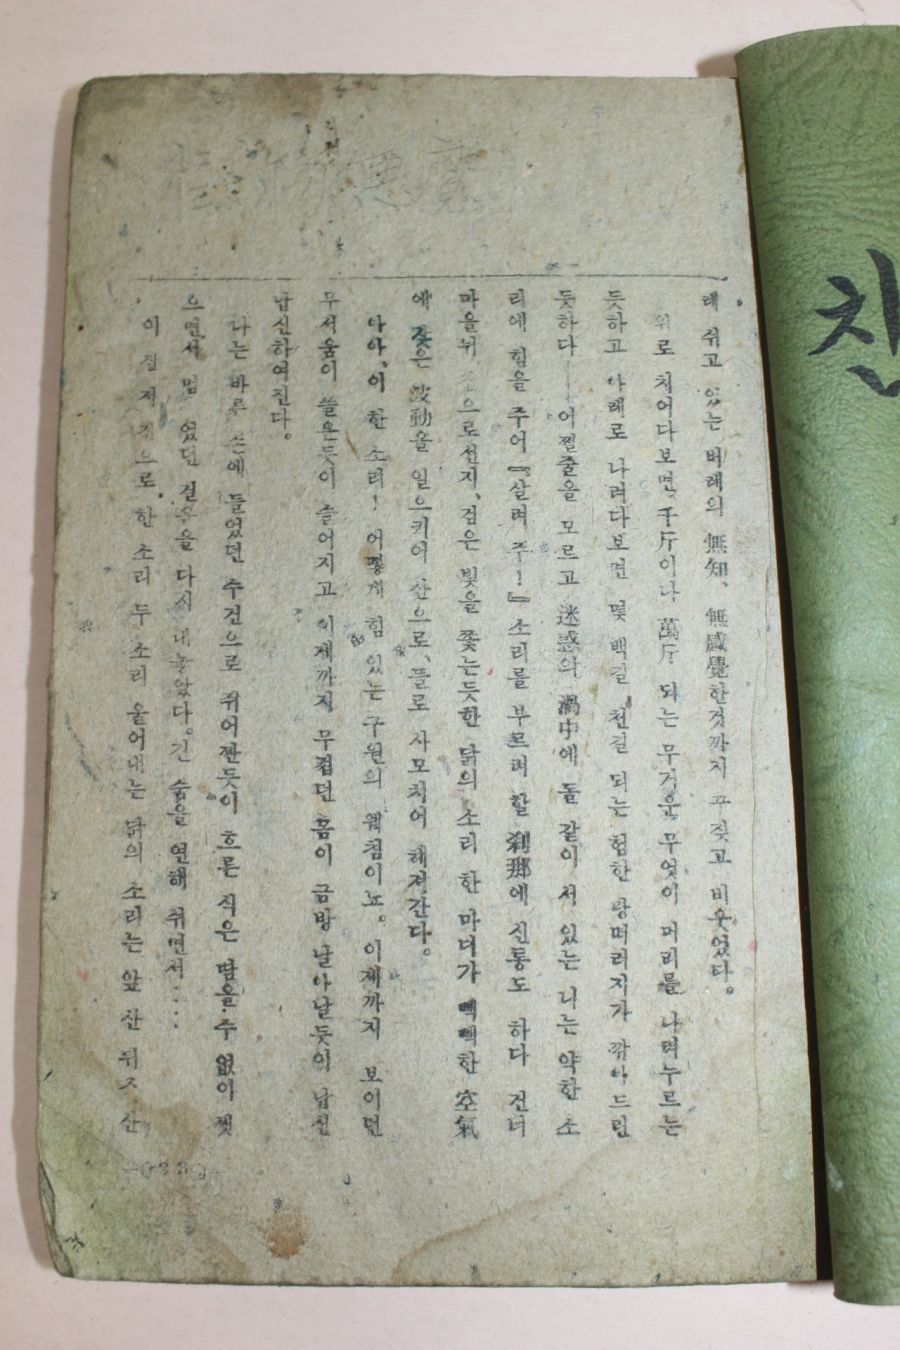 래 쉬고 있는 버레의 無知、無感覺한것까지 꾸짖고 비웃었다。
위로 치어다보면 千斤이나 萬斤 되는 무거운 무엇이 머리를 나려누르는
듯하고 아래로 나려다보면 몇 백길 천길 되는 험한 낭떠러지가 깎아드린
듯하다——어쩔줄을 모르고 迷惑의 渦中에 돌 같이 서 있는 나는 약한 소
리에 힘을 주어『살려 주!』소리를 부르려 할 刹那에 신통도 하다 건너
마을뒤 으로선지、검은 빛을 쫓는듯한 닭의 소리 한 마디가 빽빽한 空氣
에 잦은 波動을 일으키어 산으로、들로 사모치어 해저간다。
아아、이 한 소리! 어떻게 힘 있는 구원의 웨침이뇨。이제까지 보이던
무서움이 쓸은듯이 슬어지고 이제까지 무겁던 몸이 금방 날아날듯이 납신
납신하여진다。
나는 바루 손에 들었던 수건으로 쥐어짠듯이 흐른 식은 땀을 수 없이 씻
으면서 멈 었던 걸음을 다시 내놓았다。긴 숨을 연해 쉬면서⋯⋯
이 집 저 집으로 한 소리 두 소리 울어내는 닭의 소리는 앞 산 뒤 산
찬